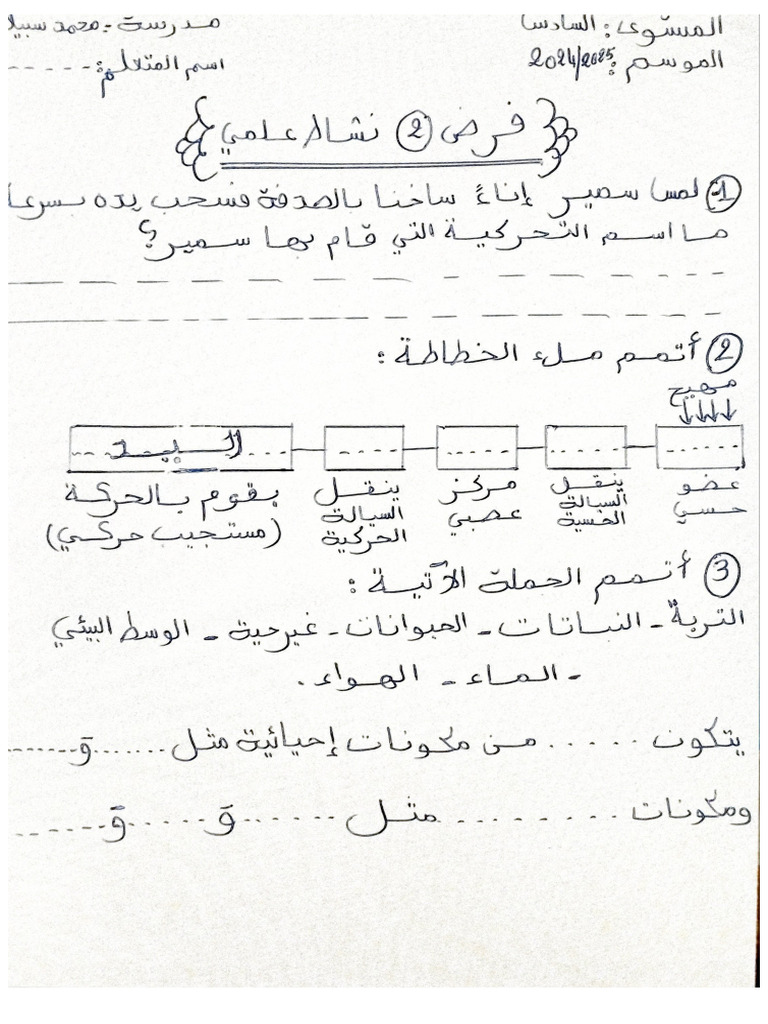 المستوى: السادس
مدرسة - محمد سبيلا
الموسم: 2024/2025
اسم المتعلم: ------
فرض ② نشاط علمي
①- لمس سمير إناءً ساخنا بالصدفة فسحب يده بسرعة
ما اسم التحركية التي قام بها سمير؟
② أتمم ملء الخطاطة:
مهيج
...... ..... ..... .... ... اليد ...
عضو حسي
ينقل السيالة الحسية
مركز عصبي
ينقل السيالة الحركية
يقوم بالحركة (مستجيب حركي)
③ أتمم الجملة الآتية:
التربة - النباتات - الحيوانات - غير حية - الوسط البيئي
- الماء - الهواء.
يتكون ..... من مكونات إحيائية مثل ....... و .......
ومكونات ......... مثل ...... و ...... و ......